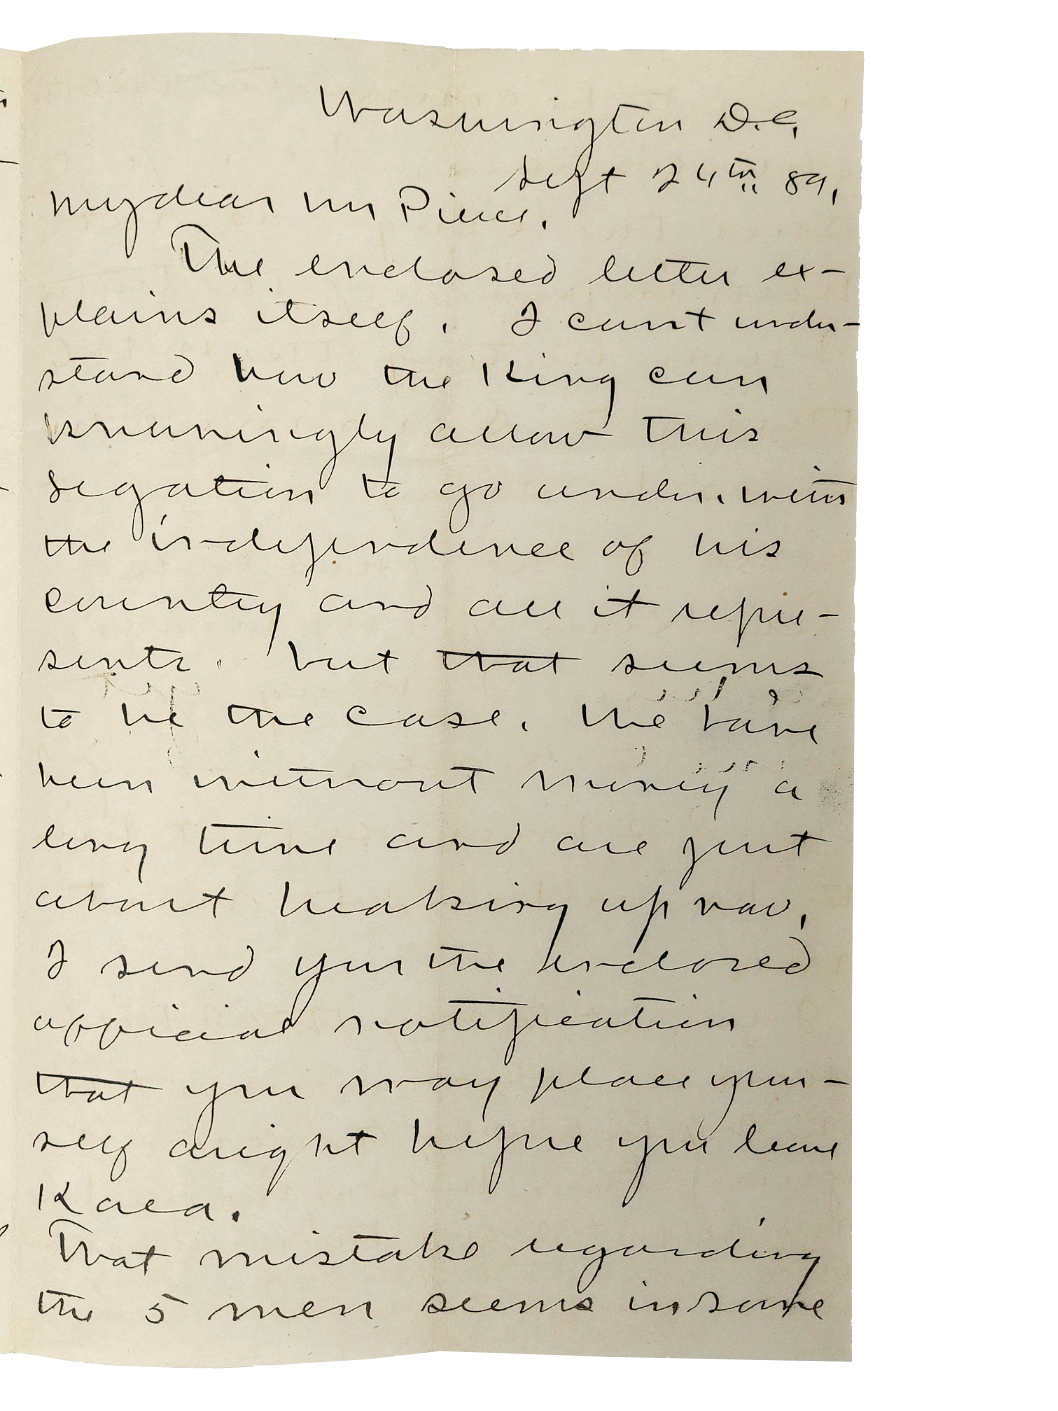 Washington D.C.
Sept 24th 89.
My dear Mr Pierce,
The enclosed letter ex-
plains itself. I can't under-
stand how the King can
knowingly allow this
legation to go under, with
the independence of his
country and all it repre-
sents. but that seems
to be the case. We have
been without money a
long time and are just
about breaking up now.
I send you the enclosed
official notification
that you may place your-
self aright before you leave
Korea.
That mistake regarding
the 5 men seems in some